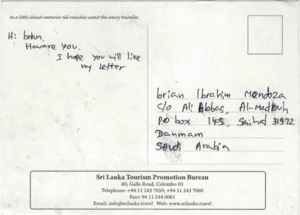 In a little island centuries old remedies await the weary traveller
Hi brian,
How are you.
I hope you will like
my letter
brian Ibrahim Mendoza
C/o Ali Abbas, Al-Madluh
PO box 145, Saihat 31972
Dammam
Saudi Arabia
Sri Lanka Tourism Promotion Bureau
80, Galle Road, Colombo 03
Telephone: +94 11 243 7059, +94 11 243 7060
Fax: +94 11 244 0001
Email: info@srilanka.travel Web: www.srilanka.travel